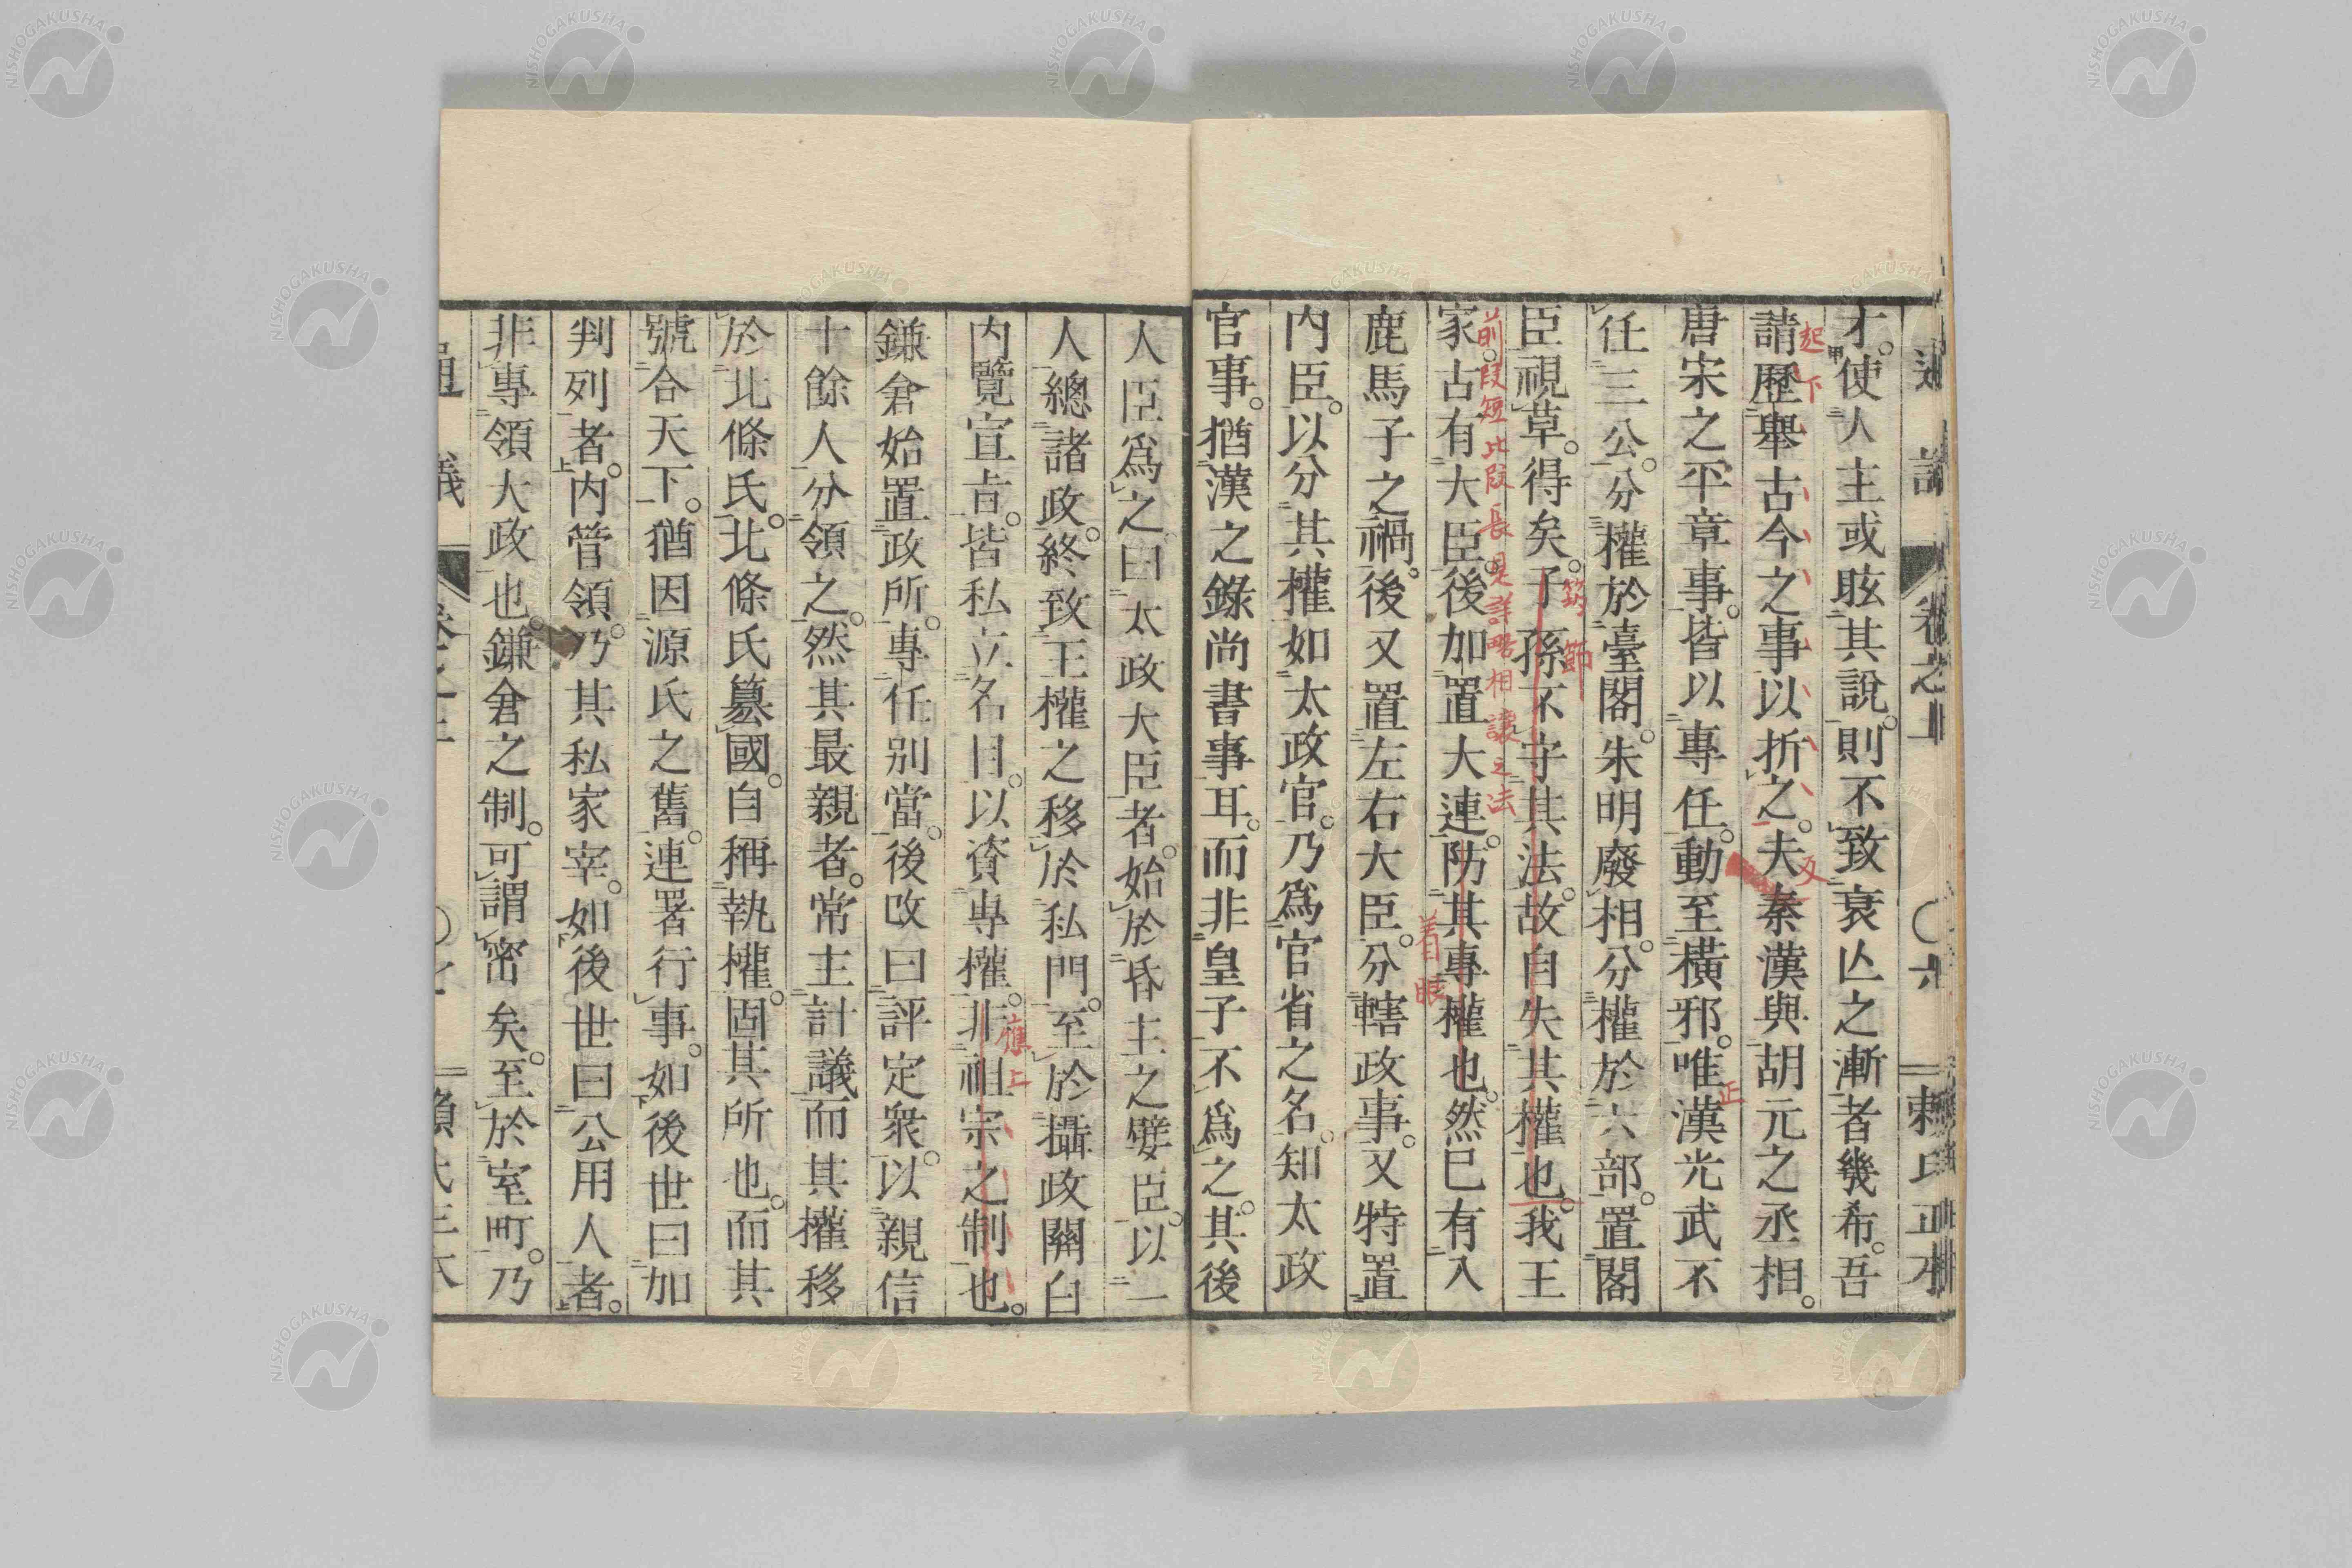 才。使人主或眩其說。則不致衰亾之漸者幾希。吾
請歷舉古今之事以折之。夫秦漢與胡元之丞相。
唐宋之平章事。皆以專任。動至橫邪。唯漢光武不
任三公。分權於臺閣。朱明廢相。分權於六部。置閣
臣視草。得矣。子孫不守其法。故自失其權也。我王
家。古有大臣。後加置大連。防其專權也。然已有入
鹿馬子之禍。後又置左右大臣。分轄政事。又特置
內臣。以分其權。如太政官。乃爲官省之名。知太政
官事。猶漢之錄尚書事耳。而非皇子不爲之。其後
起下
反
正
筋節
前段短此段長見詳略相讓之法
着眼
通議
卷之上
〇六
賴氏正本
人臣爲之曰太政大臣者。始於昏主之嬖臣。以一
人總諸政。終致王權之移於私門。至於攝政關白
內覽宣旨。皆私立名目。以資專權。非祖宗之制也。
鎌倉始置政所。專任別當。後改曰評定衆。以親信
十餘人分領之。然其最親者。常主計議。而其權移
於北條氏。北條氏簒國。自稱執權。固其所也。而其
號合天下。猶因源氏之舊。連署行事。如後世曰加
判列者。内管領。乃其私家宰。如後世曰公用人者。
非專領大政也。鎌倉之制。可謂密矣。至於室町。乃
應上
通議
NISHOGAKUSHA